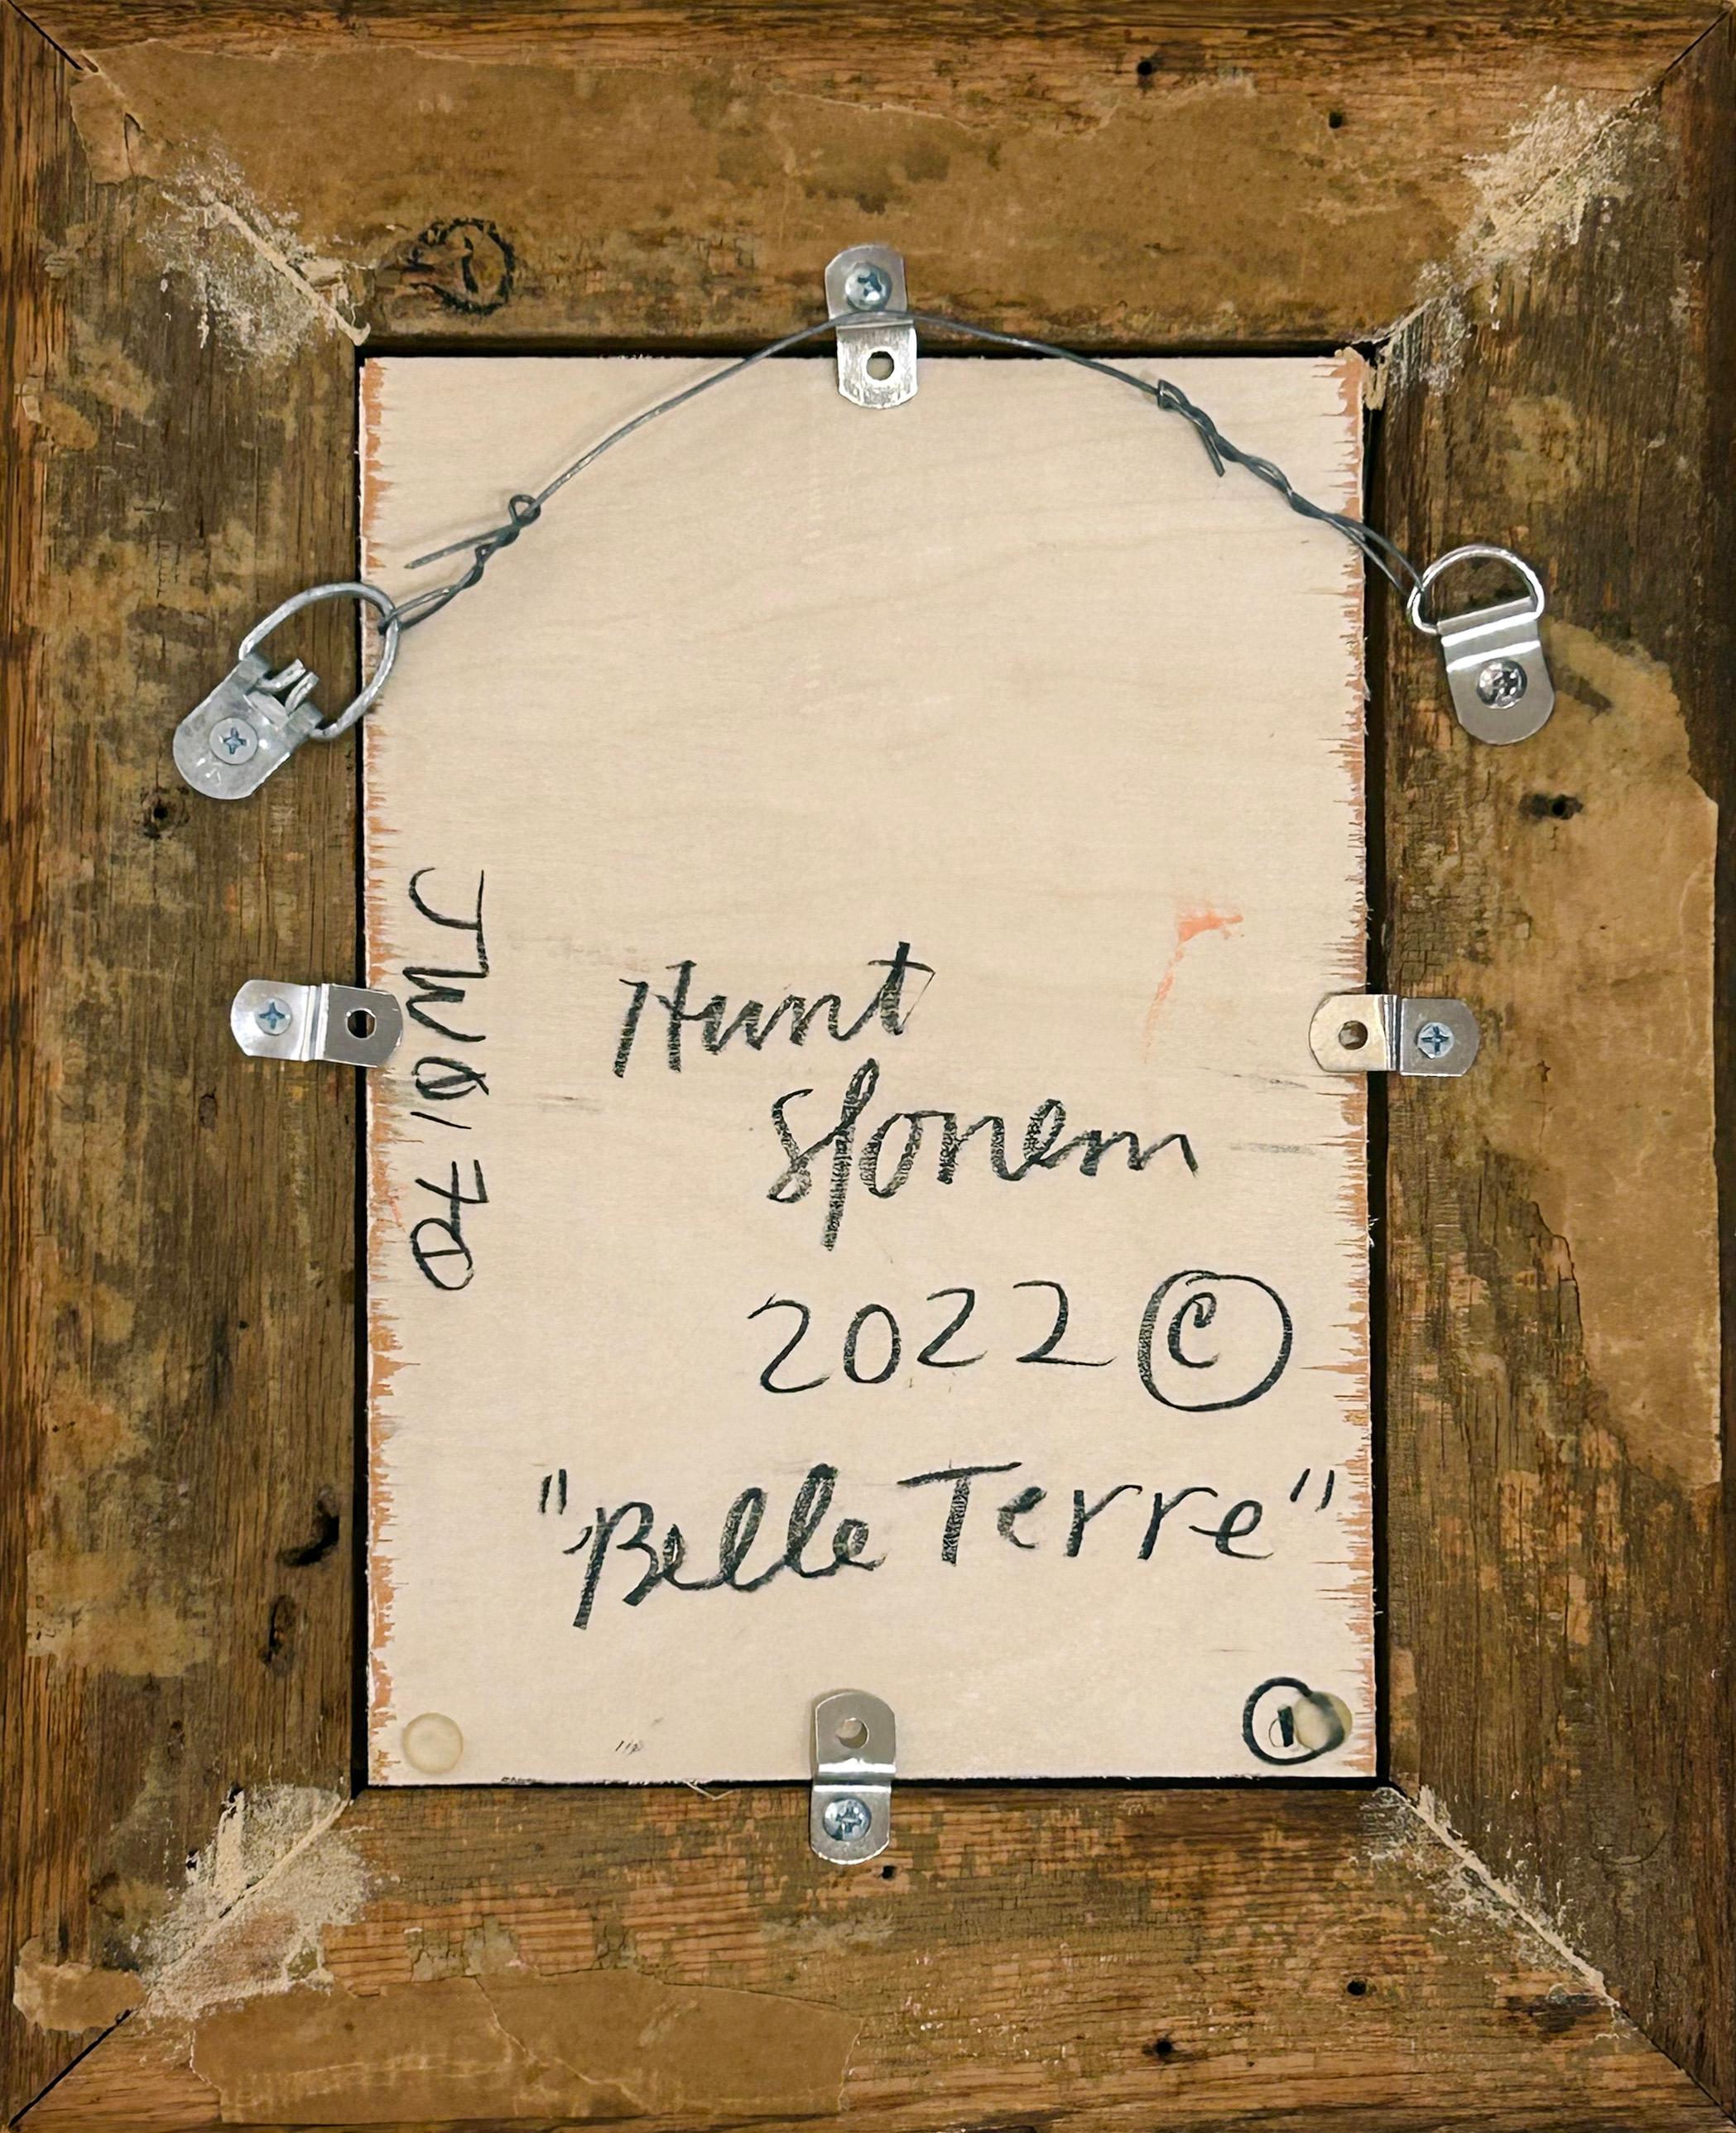 Hunt
Slonem
2022 ©
"Belle Terre"